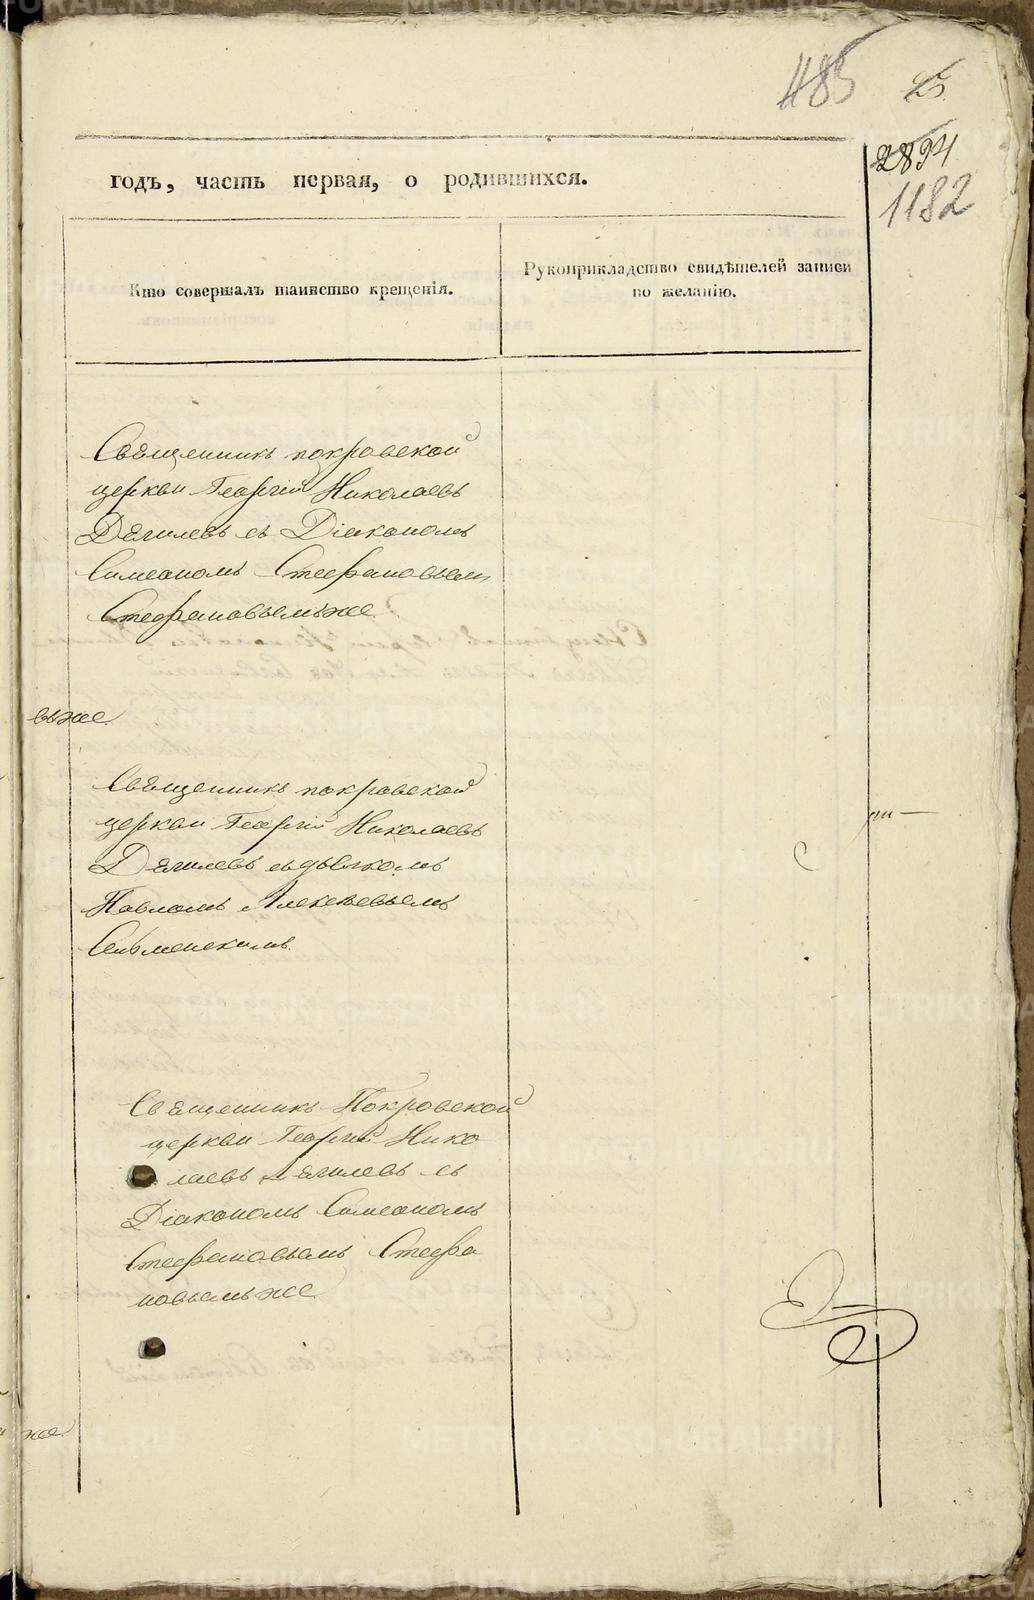 485 25
2894
1182
годъ, часть первая, о родившихся.
Кто совершалъ таинство крещенія.
Рукоприкладство свидѣтелей записи
по желанію.
Священникъ покровской
церкви Георгій Николаевъ
Дягилевъ съ Діакономъ
Симеономъ Стефановымъ
Стефановымъ же
въ же
Священникъ покровской
церкви Георгій Николаевъ
Дягилевъ съ дьячкомъ
Павломъ Алексѣевымъ
Сельменскимъ
Священникъ Покровской
церкви Георгій Нико
лаевъ Дягилевъ съ
Діакономъ Симеономъ
Стефановымъ Стефа
новымъ же
же
METRIKI.GASO-URAL.RU